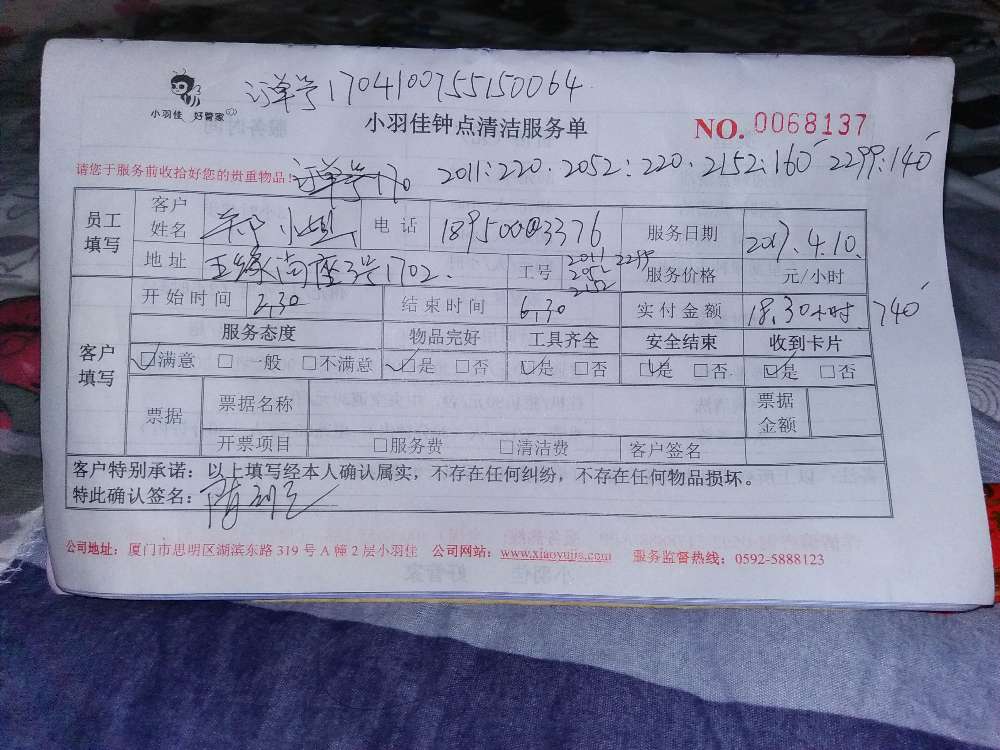 订单号1704100755150064
小羽佳 好管家
小羽佳钟点清洁服务单
NO. 0068137
请您于服务前收拾好您的贵重物品！ 订单号170 2011:220. 2052:220. 2152:160 2299:140
员工填写 客户姓名 小姐 电话 服务日期 2017.4.10.
地址 南座3号1702. 工号 2011 2299 2052 2152 服务价格 元/小时
开始时间 2,30 结束时间 6,30 实付金额 18.30小时 740
客户填写 服务态度 物品完好 工具齐全 安全结束 收到卡片
☑满意 □一般 □不满意 ☑是 □否 ☑是 □否 ☑是 □否 ☑是 □否
票据 票据名称 票据金额
开票项目 □服务费 □清洁费 客户签名
客户特别承诺：以上填写经本人确认属实，不存在任何纠纷，不存在任何物品损坏。
特此确认签名：
公司地址：厦门市思明区湖滨东路 319 号 A 幢 2 层小羽佳 公司网站：www.xiaoyujia.com 服务监督热线：0592-5888123